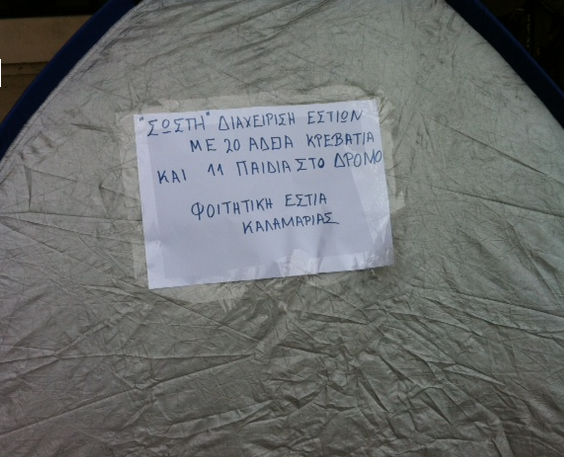 "ΣΩΣΤΗ" ΔΙΑΧΕΙΡΙΣΗ ΕΣΤΙΩΝ
ΜΕ 20 ΑΔΕΙΑ ΚΡΕΒΑΤΙΑ
ΚΑΙ 11 ΠΑΙΔΙΑ ΣΤΟ ΔΡΟΜΟ
ΦΟΙΤΗΤΙΚΗ ΕΣΤΙΑ
ΚΑΛΑΜΑΡΙΑΣ